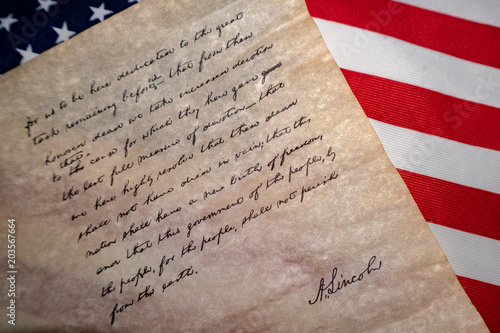 for us to be here dedicated to the great
task remaining before us — that from these
honored dead we take increased devotion
to that cause for which they here gave
the last full measure of devotion — that
we here highly resolve that these dead
shall not have died in vain; that this
nation shall have a new birth of freedom,
and that this government of the people, by
the people, for the people, shall not perish
from the earth.
A. Lincoln
Adobe Stock | #203567664